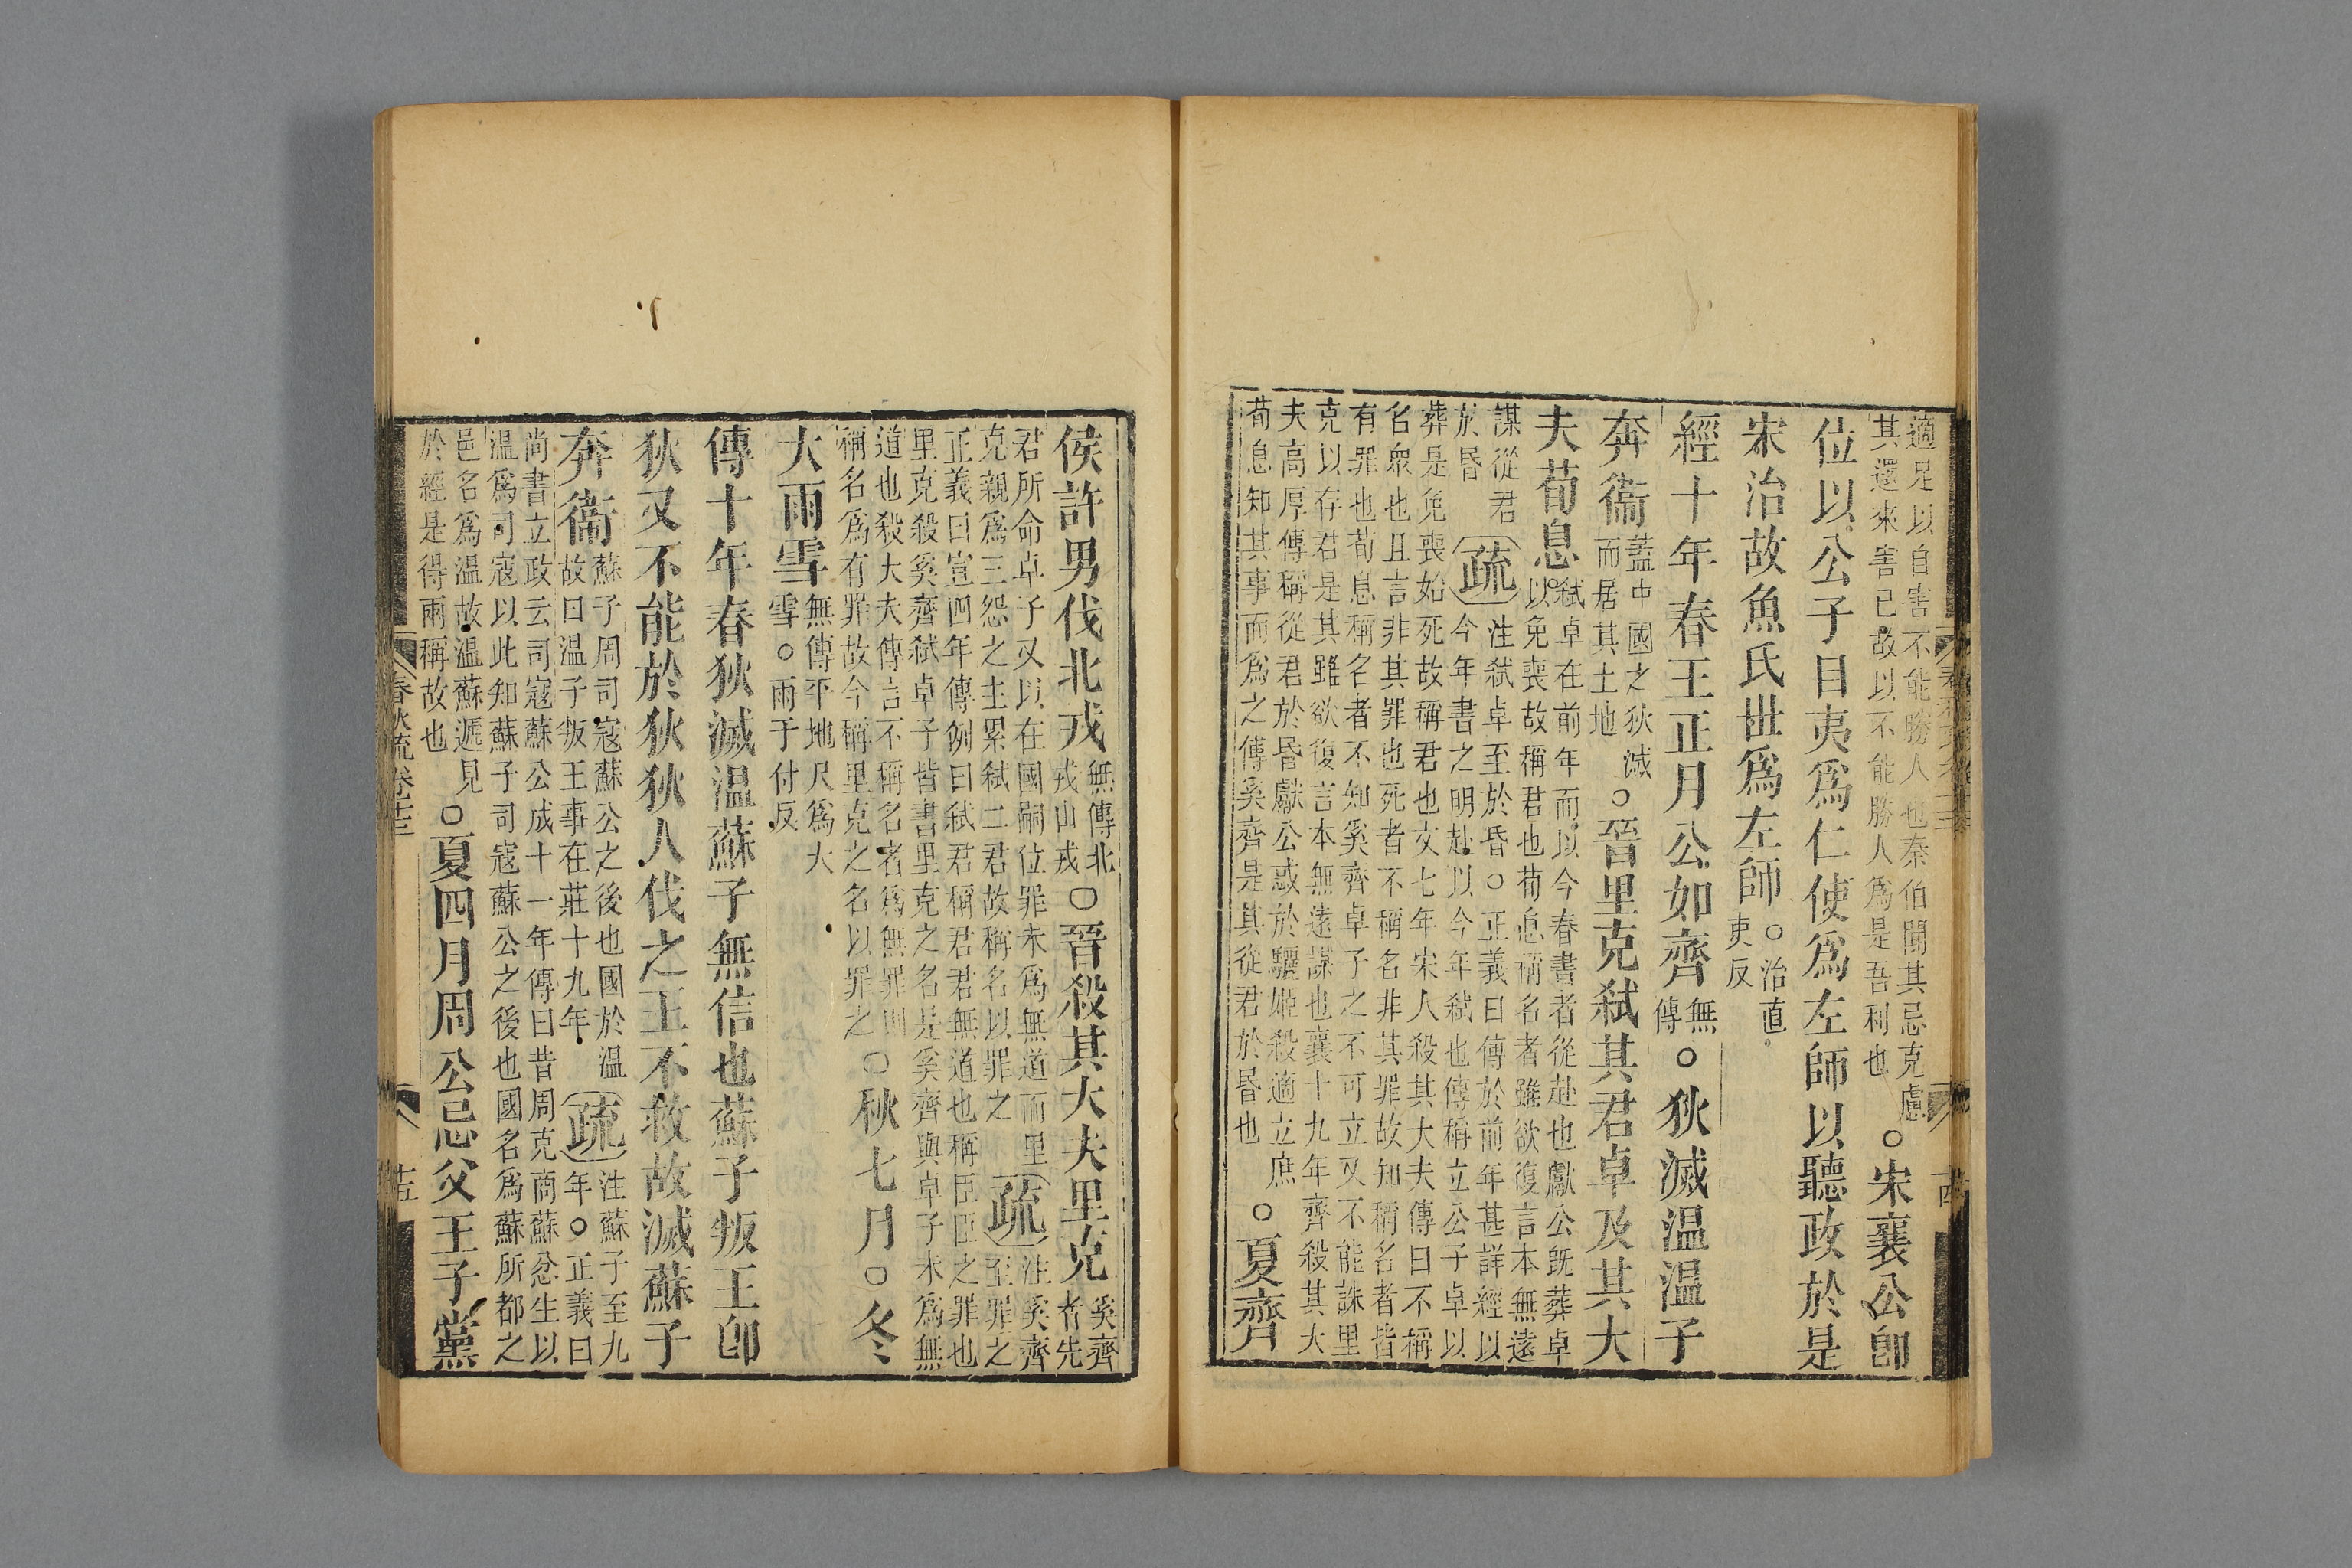 適足以自害不能勝人也秦伯聞其忌克慮
其還來害已故以不能勝人爲是吾利也
○宋襄公卽
位以公子目夷爲仁使爲左師以聽政於是
宋治故魚氏世爲左師
○治直
吏反
經十年春王正月公如齊
無
傳
○狄滅温温子
奔衞
蓋中國之狄滅
而居其土地
○晉里克弑其君卓及其大
夫荀息
弑卓在前年而以今春書者從赴也獻公旣葬卓
以免喪故稱君也荀息稱名者雖欲復言本無遠
謀從君
於昏
疏
注弑卓至於昏○正義曰傳於前年甚詳經以
今年書之明赴以今年弑也傳稱立公子卓以
葬是免喪始死故稱君也文七年宋人殺其大夫傳曰不稱
名衆也且言非其罪也死者不稱名非其罪故知稱名者皆
有罪也荀息稱名者不知奚齊卓子之不可立又不能誅里
克以存君是其雖欲復言本無遠謀也襄十九年齊殺其大
夫高厚傳稱從君於昏獻公惑於驪姬殺適立庶
荀息知其事而爲之傅奚齊是其從君於昏也
○夏齊
侯許男伐北戎
無傳北
戎山戎
○晉殺其大夫里克
奚齊
者先
君所命卓子又以在國嗣位罪未爲無道而里
克親爲三怨之主累弑二君故稱名以罪之
疏
注奚齊
至罪之
正義曰宣四年傳例曰弑君稱君君無道也稱臣臣之罪也
里克殺奚齊弑卓子皆書里克之名是奚齊與卓子未爲無
道也殺大夫傳言不稱名者爲無罪則
稱名爲有罪故今稱里克之名以罪之
○秋七月○冬
大雨雪
無傳平地尺爲大
雪○雨于付反
傳十年春狄滅温蘇子無信也蘇子叛王卽
狄又不能於狄狄人伐之王不救故滅蘇子
奔衞
蘇子周司寇蘇公之後也國於温
故曰温子叛王事在莊十九年
疏
注蘇子至九
年○正義曰
尚書立政云司寇蘇公成十一年傳曰昔周克商蘇忿生以
温爲司寇以此知蘇子司寇蘇公之後也國名爲蘇所都之
邑名爲温故温蘇遞見
於經是得兩稱故也
○夏四月周公忌父王子黨
春秋疏卷十三